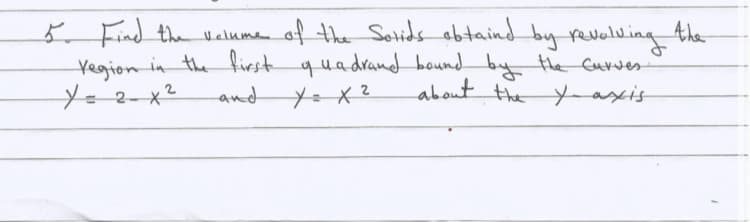 5. Find the volume of the Solids obtaind by revolving the
region in the first quadrand bound by the curves
y = 2 - x² and y = x² about the y-axis